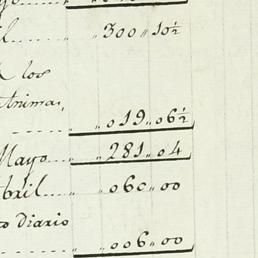 300 〃 10½
los
nimas,
〃 019 〃 06½
Mayo 〃 281 〃 04
bril 〃 060 〃 00
to Diario
〃 006 〃 00